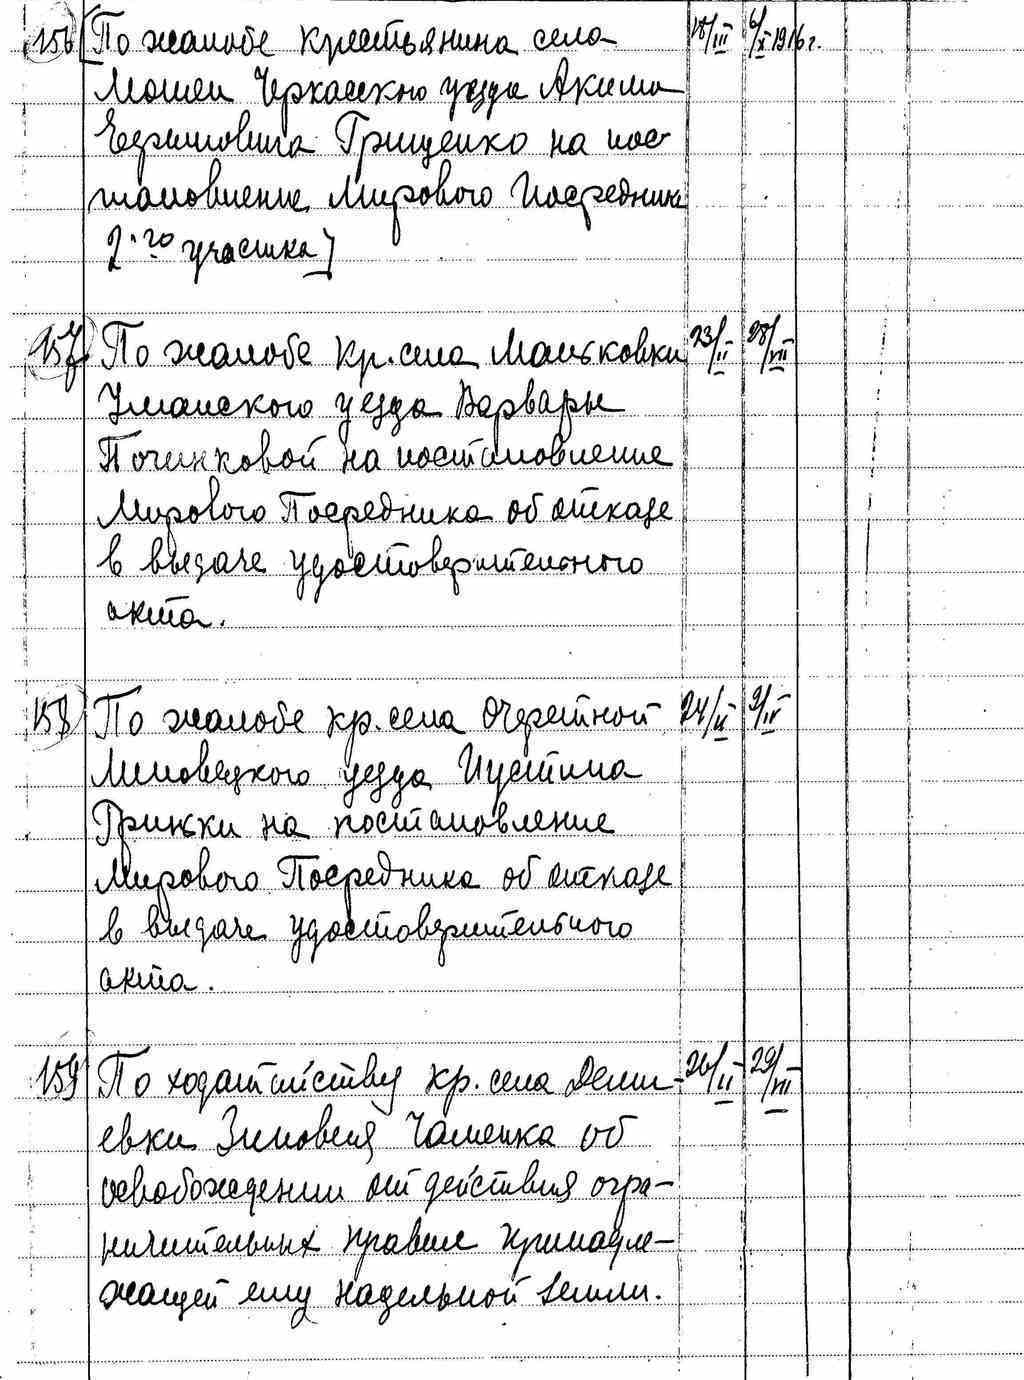 156 [По жалобе крестьянина села 18/III 6/X 1916 г.
Мошен Черкасского уезда Акима
Ефимовича Грищенко на пос-
тановление Мирового Посредника
2-го участка]
157 По жалобе кр. села Маньковки 23/II 28/VII
Уманского уезда Варвары
Починковой на постановление
Мирового Посредника об отказе
в выдаче удостоверительного
акта.
158 По жалобе кр. села Очеретной 24/II 9/IV
Липовецкого уезда Иустина
Гринжи на постановление
Мирового Посредника об отказе
в выдаче удостоверительного
акта.
159 По ходатайству кр. села Деми- 26/II 29/VII
евки Зиновия об
освобождении от действия огра-
ничительных правил принадле-
жащей ему надельной земли.